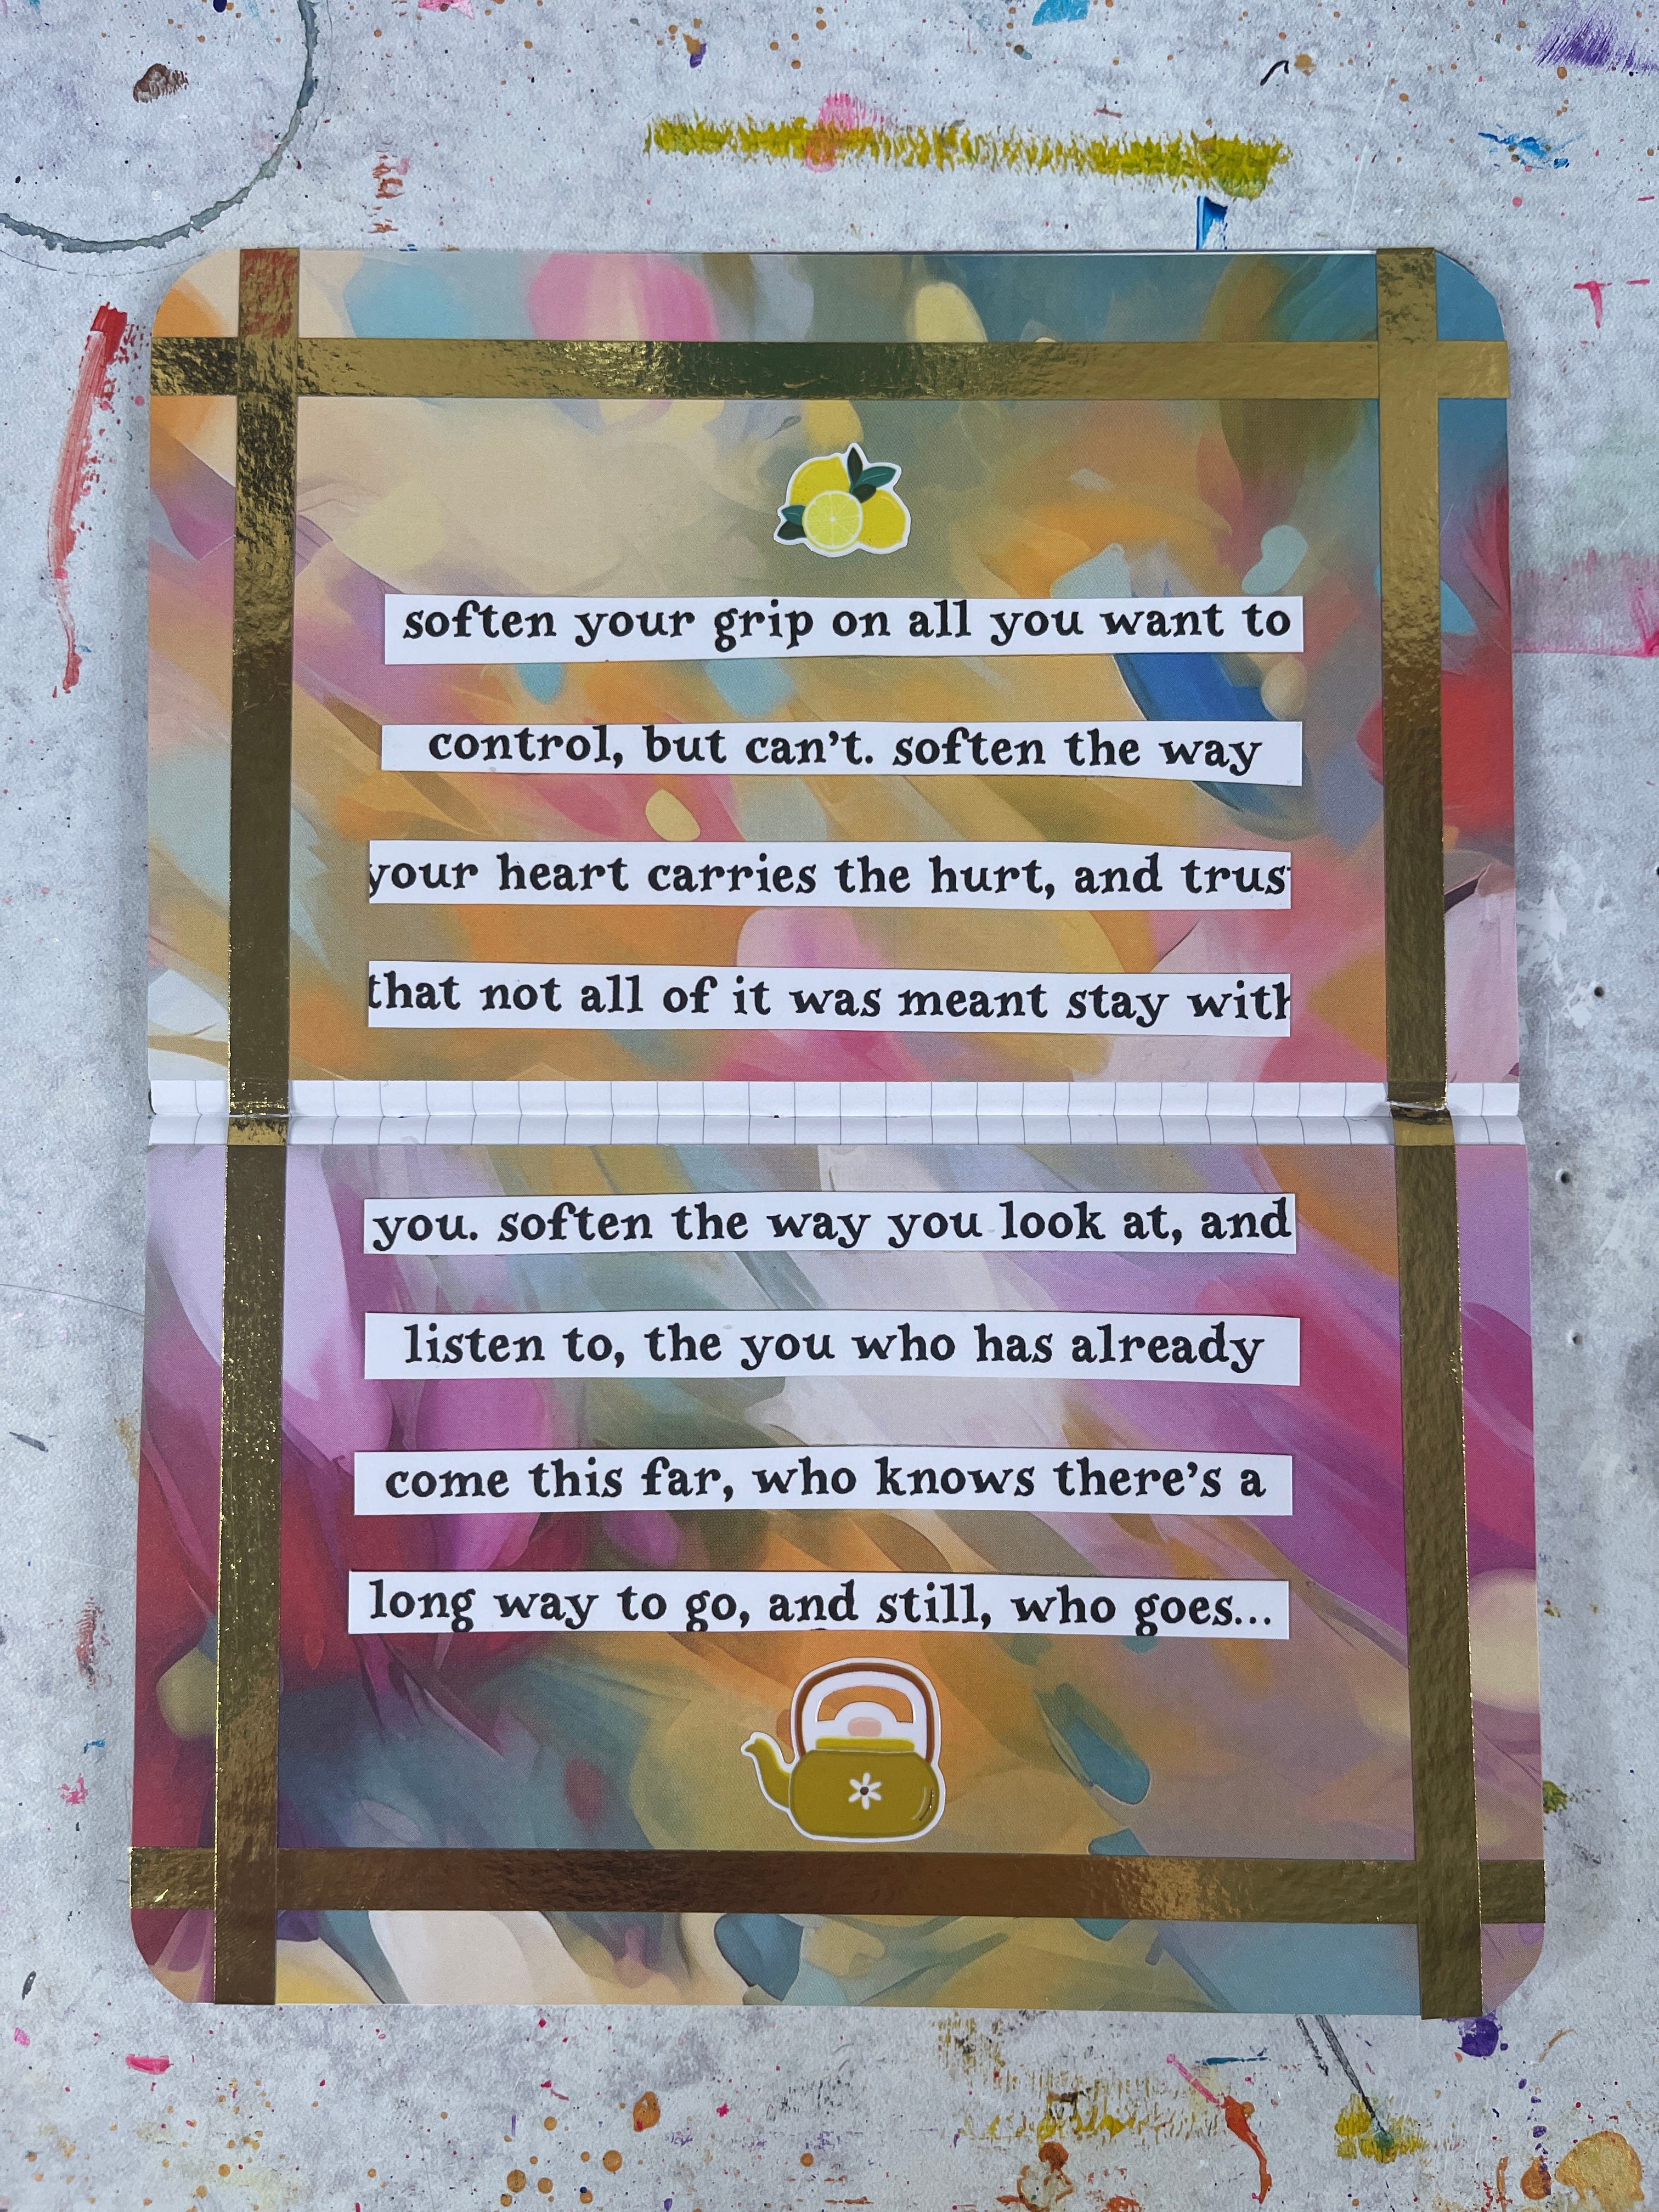 soften your grip on all you want to
control, but can't. soften the way
your heart carries the hurt, and trust
that not all of it was meant stay with
you. soften the way you look at, and
listen to, the you who has already
come this far, who knows there's a
long way to go, and still, who goes...